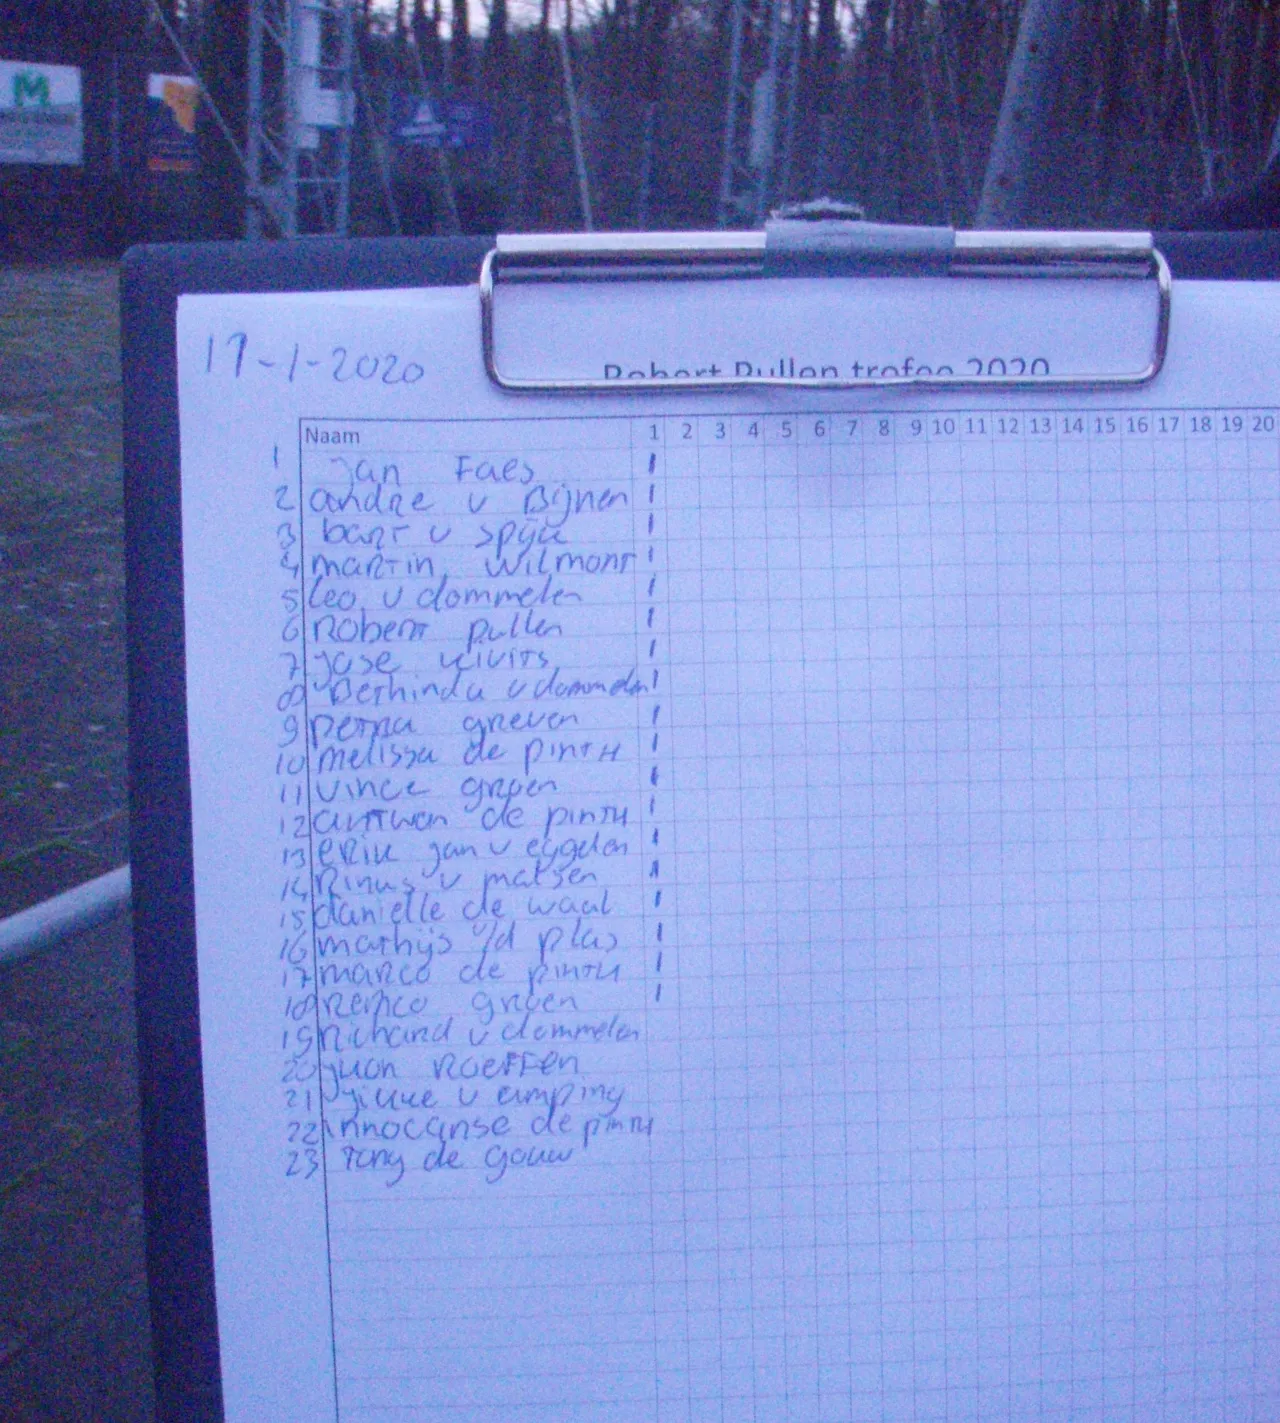 17-1-2020
Robert Pullen trofee 2020
Naam 1 2 3 4 5 6 7 8 9 10 11 12 13 14 15 16 17 18 19 20
1 Jan Faes
2 andre v Bijnen
3 bart v spijk
4 martin wilmont
5 Leo v dommelen
6 Robert pullen
7 Jose vivits
8 Berhinda v dommelen
9 petra greven
10 melissa de pinth
11 vince groen
12 antwan de pinth
13 erik jan v eggelen
14 Rinus v matsen
15 danielle de waal
16 mathijs v/d plas
17 marco de pinth
18 remco groen
19 Richard v dommelen
20 juan Roeffen
21 v
22 innocanse de pinth
23 Tony de gouw